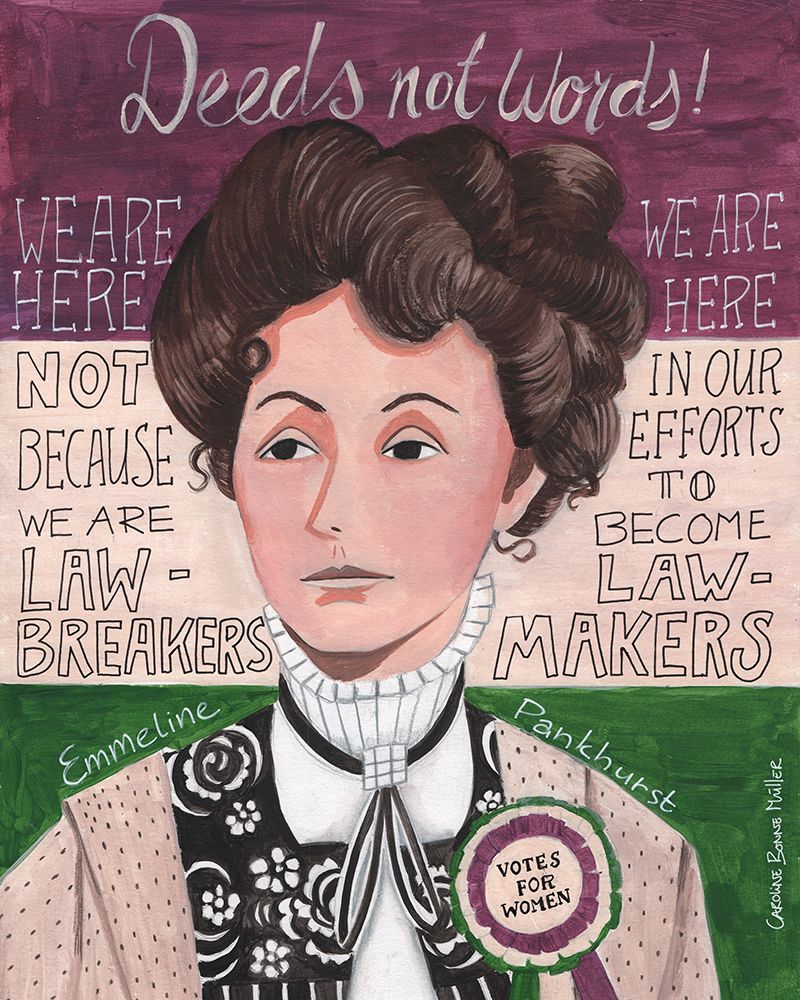 Deeds not Words!
WE ARE
HERE
NOT
BECAUSE
WE ARE
LAW-
BREAKERS
WE ARE
HERE
IN OUR
EFFORTS
TO
BECOME
LAW-
MAKERS
Emmeline
Pankhurst
VOTES
FOR
WOMEN
CAROLINE BONNE MÜLLER